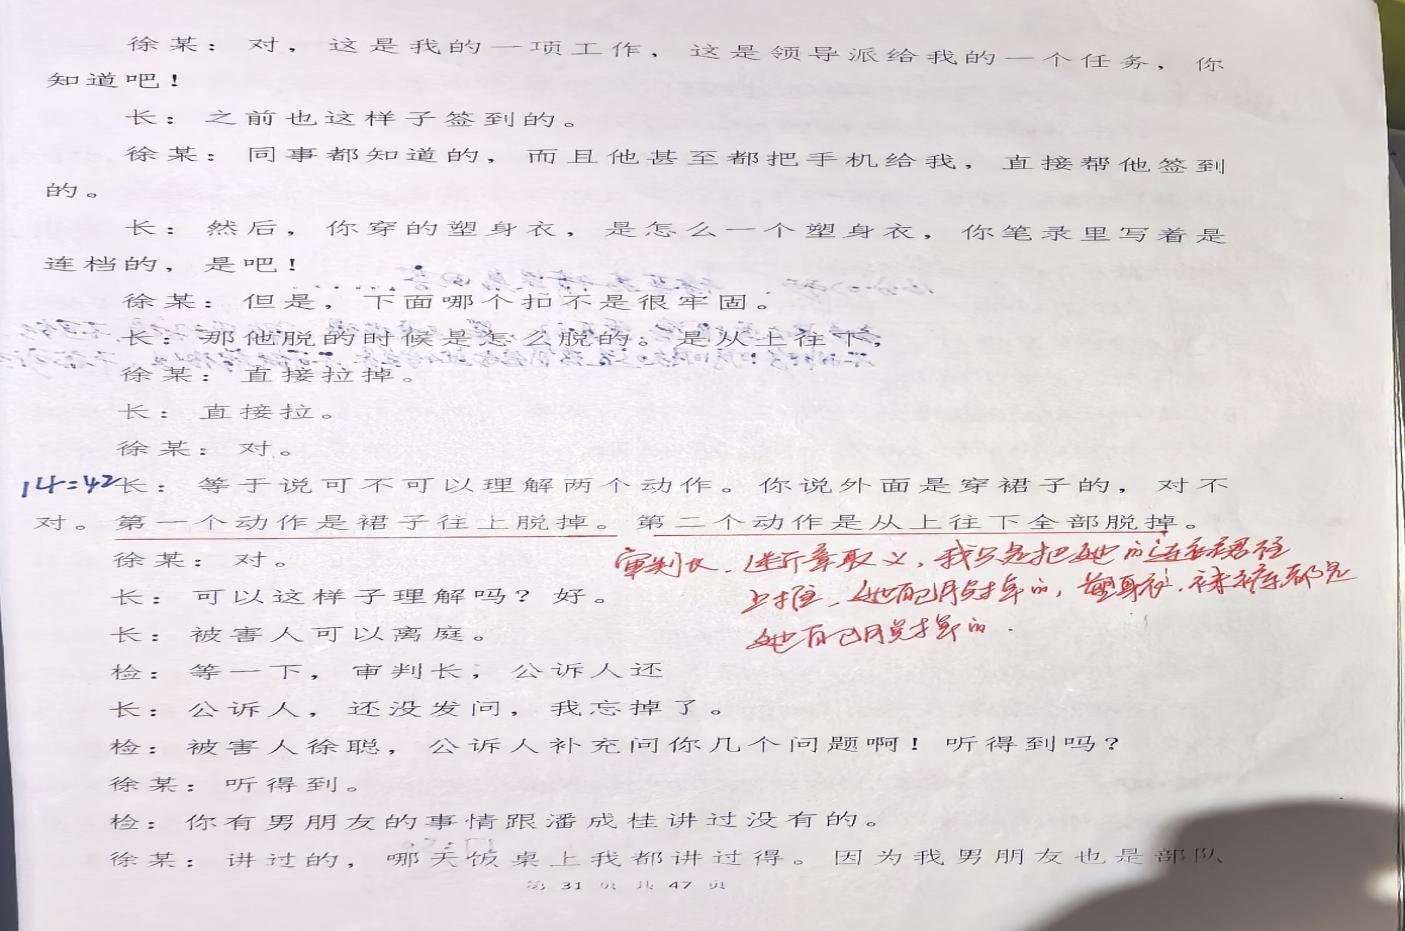 徐某：对，这是我的一项工作，这是领导派给我的一个任务，你
知道吧！
长：之前也这样子签到的。
徐某：同事都知道的，而且他甚至都把手机给我，直接帮他签到
的。
长：然后，你穿的塑身衣，是怎么一个塑身衣，你笔录里写着是
连档的，是吧！
徐某：但是，下面哪个扣不是很牢固。
长：那他脱的时候是怎么脱的。是从上往下，
徐某：直接拉掉。
长：直接拉。
徐某：对。
14=42
长：等于说可不可以理解两个动作。你说外面是穿裙子的，对不
对。第一个动作是裙子往上脱掉。第二个动作是从上往下全部脱掉。
徐某：对。
审判长，断章取义，我只是把她的连衣裙往
长：可以这样子理解吗？好。
上推，她自己脱掉的，塑身衣、裤袜都是
长：被害人可以离庭。
她自己脱掉的.
检：等一下，审判长，公诉人还
长：公诉人，还没发问，我忘掉了。
检：被害人徐聪，公诉人补充问你几个问题啊！听得到吗？
徐某：听得到。
检：你有男朋友的事情跟潘成桂讲过没有的。
徐某：讲过的，哪天饭桌上我都讲过得。因为我男朋友也是部队
第 31 页 共 47 页